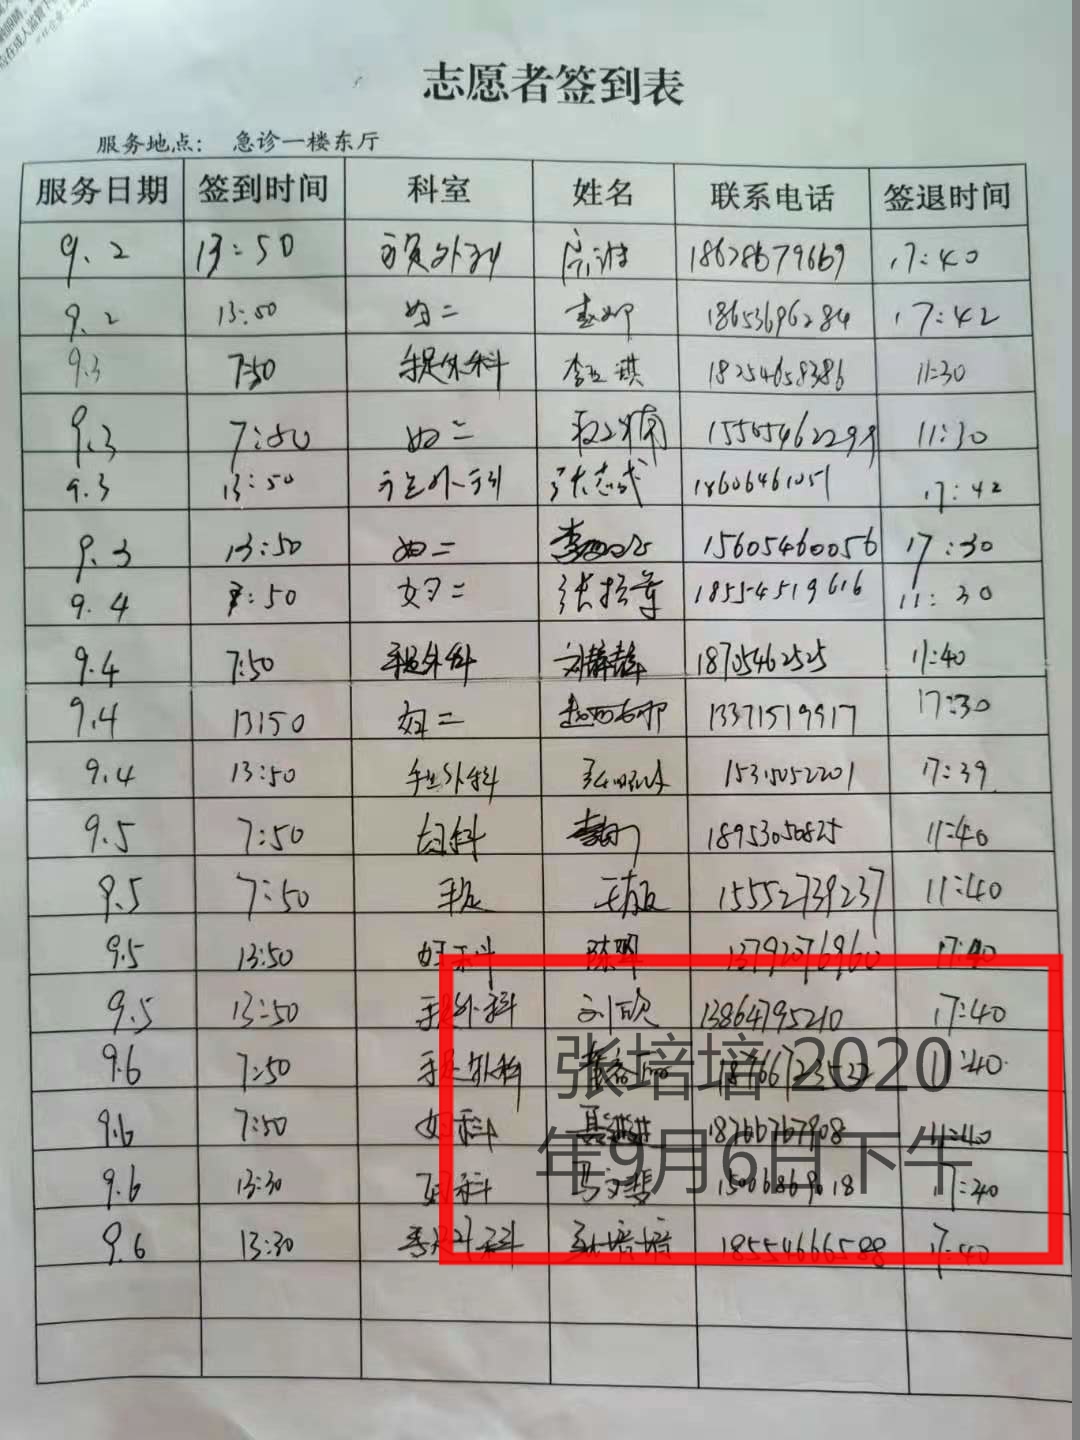 志愿者签到表
服务地点： 急诊一楼东厅
服务日期 签到时间 科室 姓名 联系电话 签退时间
9.2 13:50 18628679669 17:40
9.2 13:50 妇二 18653696284 17:42
9.3 7:50 手足外科 李 琪 18254658386 11:30
9.3 7:50 妇二 15565462299 11:30
9.3 13:50 手足外科 张志成 18606461051 17:42
9.3 13:50 妇二 15605460056 17:30
9.4 7:50 妇二 18554519616 11:30
9.4 7:50 手足外科 刘静静 18705462525 11:40
9.4 13:50 妇二 13371519917 17:30
9.4 13:50 手足外科 15315052201 17:39
9.5 7:50 妇科 18953050825 11:40
9.5 7:50 手足 15552739237 11:40
9.5 13:50 妇科 陈 13792076960 17:40
9.5 13:50 手足外科 刘欣 13864795210 17:40
9.6 7:50 手足外科 11:40
9.6 7:50 妇科 18266767908 11:40
9.6 13:30 妇科 17:40
9.6 13:30 手足外科 张培培 18554666588 17:40
张培培 2020
年9月6日下午